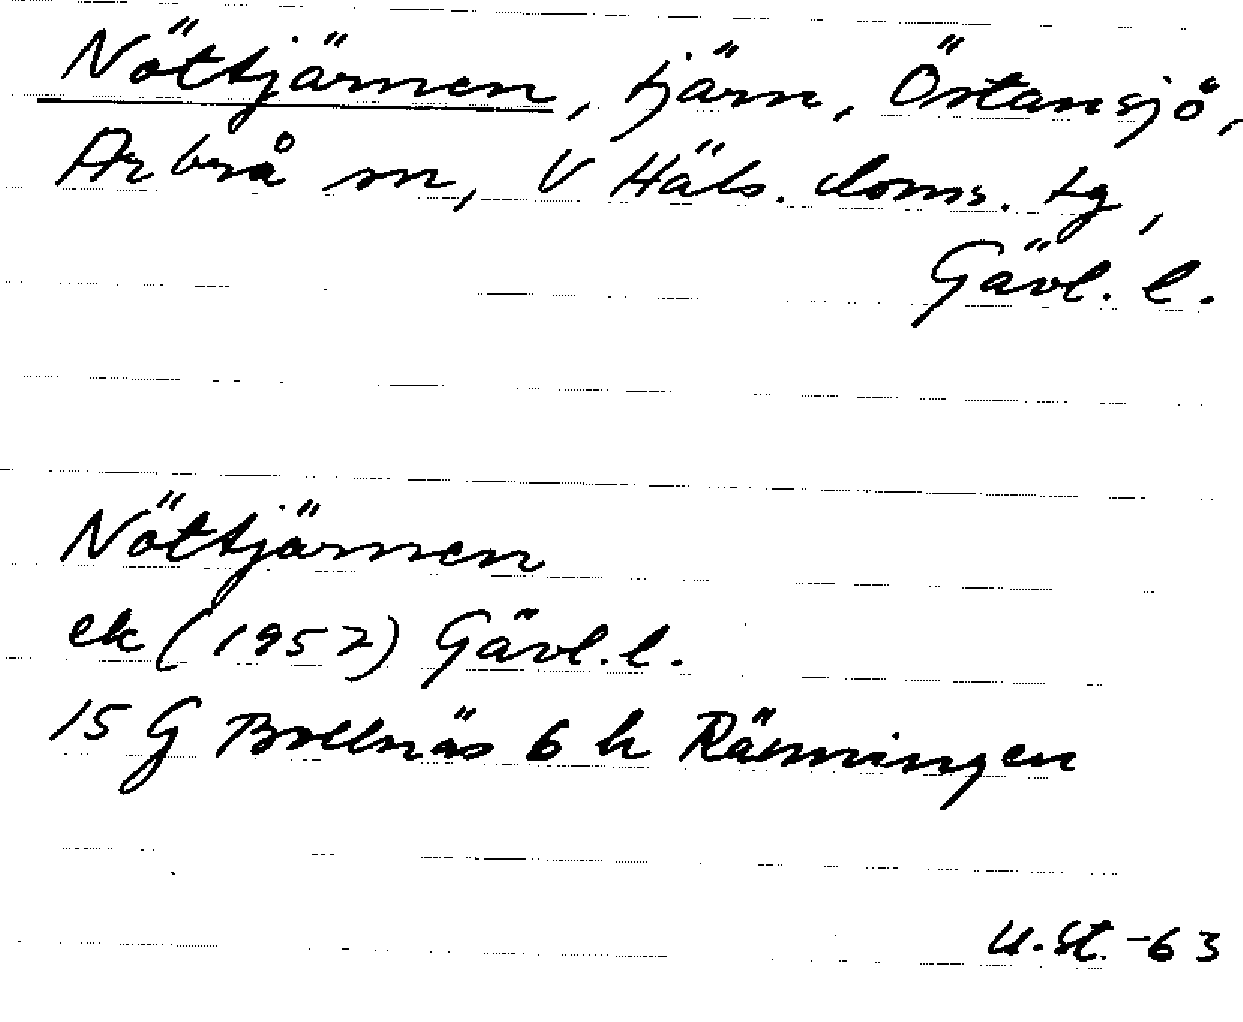 Nöttjärnen, tjärn, Östansjö,
Arbrå sn, V Häls. doms. tg,
Gävl. l.
Nöttjärnen
ek (1957) Gävl. l.
15 G Bollnäs 6 hRänningen
U. St. -63